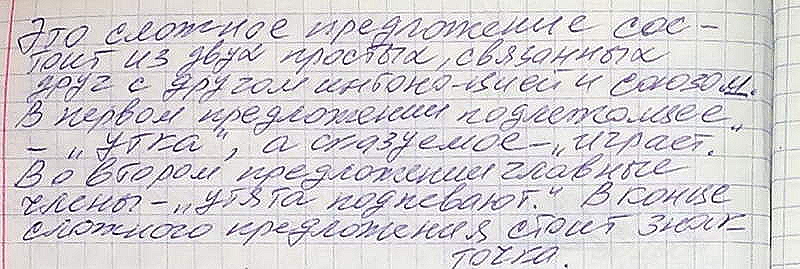 Это сложное предложение сос-
тоит из двух простых, связанных
друг с другом интона-цией и союзом.
В первом предложении подлежащее
- „утка", а сказуемое - „играет."
Во втором предложении главные
члены - „утята подпевают." В конце
сложного предложения стоит знак-
точка.